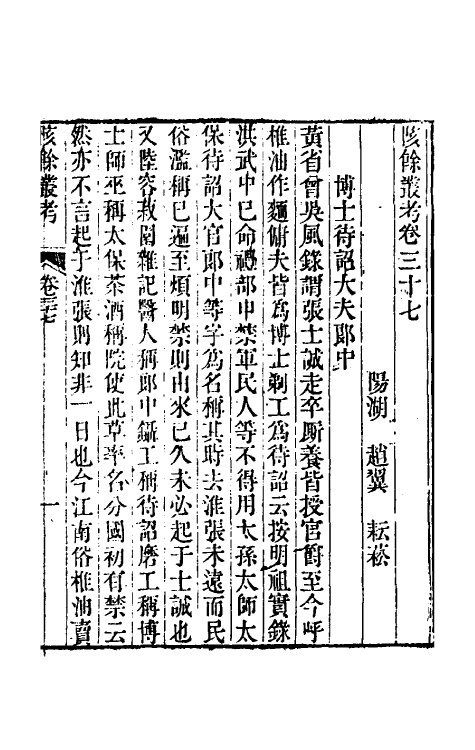 陔餘叢考卷三十七
陽湖 趙翼 耘菘
博士待詔大夫郎中
黃省曾吳風錄謂張士誠走卒厮養皆授官爵至今呼
椎油作麵傭夫皆爲博士剃工爲待詔云按明祖實錄
洪武中已命禮部申禁軍民人等不得用太孫太師太
保待詔大官郎中等字爲名稱其時去淮張未遠而民
俗濫稱已遍至煩明禁則由來已久未必起于士誠也
又陸容菽園雜記醫人稱郎中鑷工稱待詔磨工稱博
士師巫稱太保茶酒稱院使此草率名分國初有禁云
然亦不言起于淮張則知非一日也今江南俗椎油賣
陔餘叢考 卷三十七 一